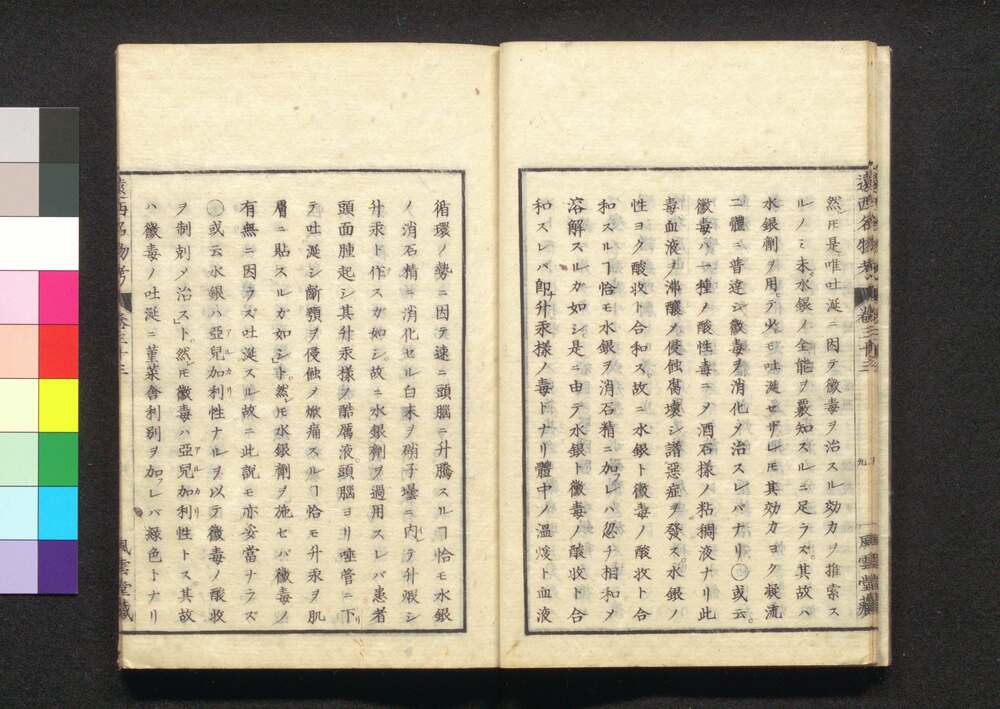 然𪜈是唯吐涎ニ因テ黴毒ヲ治スル効力ヲ推索ス
ルノミ未水銀ノ全能ヲ覈知スルニ足ラズ。其故ハ
水銀剤ヲ用テ少モ吐涎セザレ𪜈其効力ヨク凝流
二體ニ普達シ黴毒ヲ消化メ治スレバナリ○或云。
黴毒ハ一種ノ酸性毒ニメ酒石様ノ粘稠液ナリ此
毒血液ノ沸釀メ侵蝕腐壊シ諸惡症ヲ發ス水銀ノ
性ヨク酸收ト合和ス故ニ水銀ト黴毒ノ酸收ト合
和スルヿ恰モ水銀ヲ消石精ニ加レハ忽チ相和メ
溶解スルガ如シ是ニ由テ水銀ト黴毒ノ酸收ト合
和スレバ即升汞樣ノ毒トナリ體中ノ温煖ト血液
循環ノ勢ニ因テ速ニ頭腦ニ升騰スルヿ恰モ水銀
ノ消石精ニ消化セル白末ヲ硝子壜ニ内テ升煅シ
升汞ト作スガ如シ。故ニ水銀劑ヲ過用スレバ患者
頭面腫起シ其升汞樣ノ酷厲液。頭腦ヨリ唾管ニ下
テ吐涎シ齗顎ヲ侵蝕メ焮痛スルヿ恰モ升汞ヲ肌
膚ニ貼スルガ如シ」ト。然𪜈水銀劑ヲ施セバ黴毒ノ
有無ニ因ラズ吐涎スル故ニ此説モ亦妥當ナラズ
○或云水銀ハ亞兒加利性ナルヲ以テ黴毒ノ酸收
ヲ制剋メ治ス」ト。然𪜈黴毒ハ亞兒加利性トス其故
ハ黴毒ノ吐涎ニ菫菜舎利別ヲ加フレバ緑色トナリ
遠西名物考
卷三十三
風雲堂藏